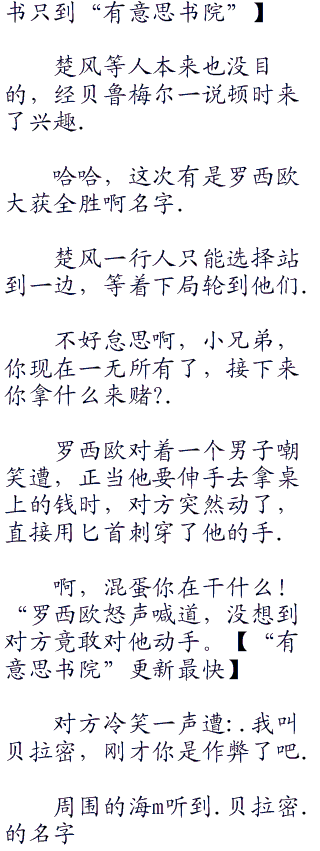 书只到“有意思书院”】
楚风等人本来也没目
的，经贝鲁梅尔一说顿时来
了兴趣.
哈哈，这次有是罗西欧
大获全胜啊名字.
楚风一行人只能选择站
到一边，等着下局轮到他们.
不好怠思啊，小兄弟，
你现在一无所有了，接下来
你拿什么来赌?.
罗西欧对着一个男子嘲
笑遭，正当他要伸手去拿桌
上的钱时，对方突然动了，
直接用匕首刺穿了他的手.
啊，混蛋你在干什么！
“罗西欧怒声喊道，没想到
对方竟敢对他动手。【“有
意思书院”更新最快】
对方冷笑一声遭:.我叫
贝拉密，刚才你是作弊了吧.
周围的海m听到.贝拉密.
的名字